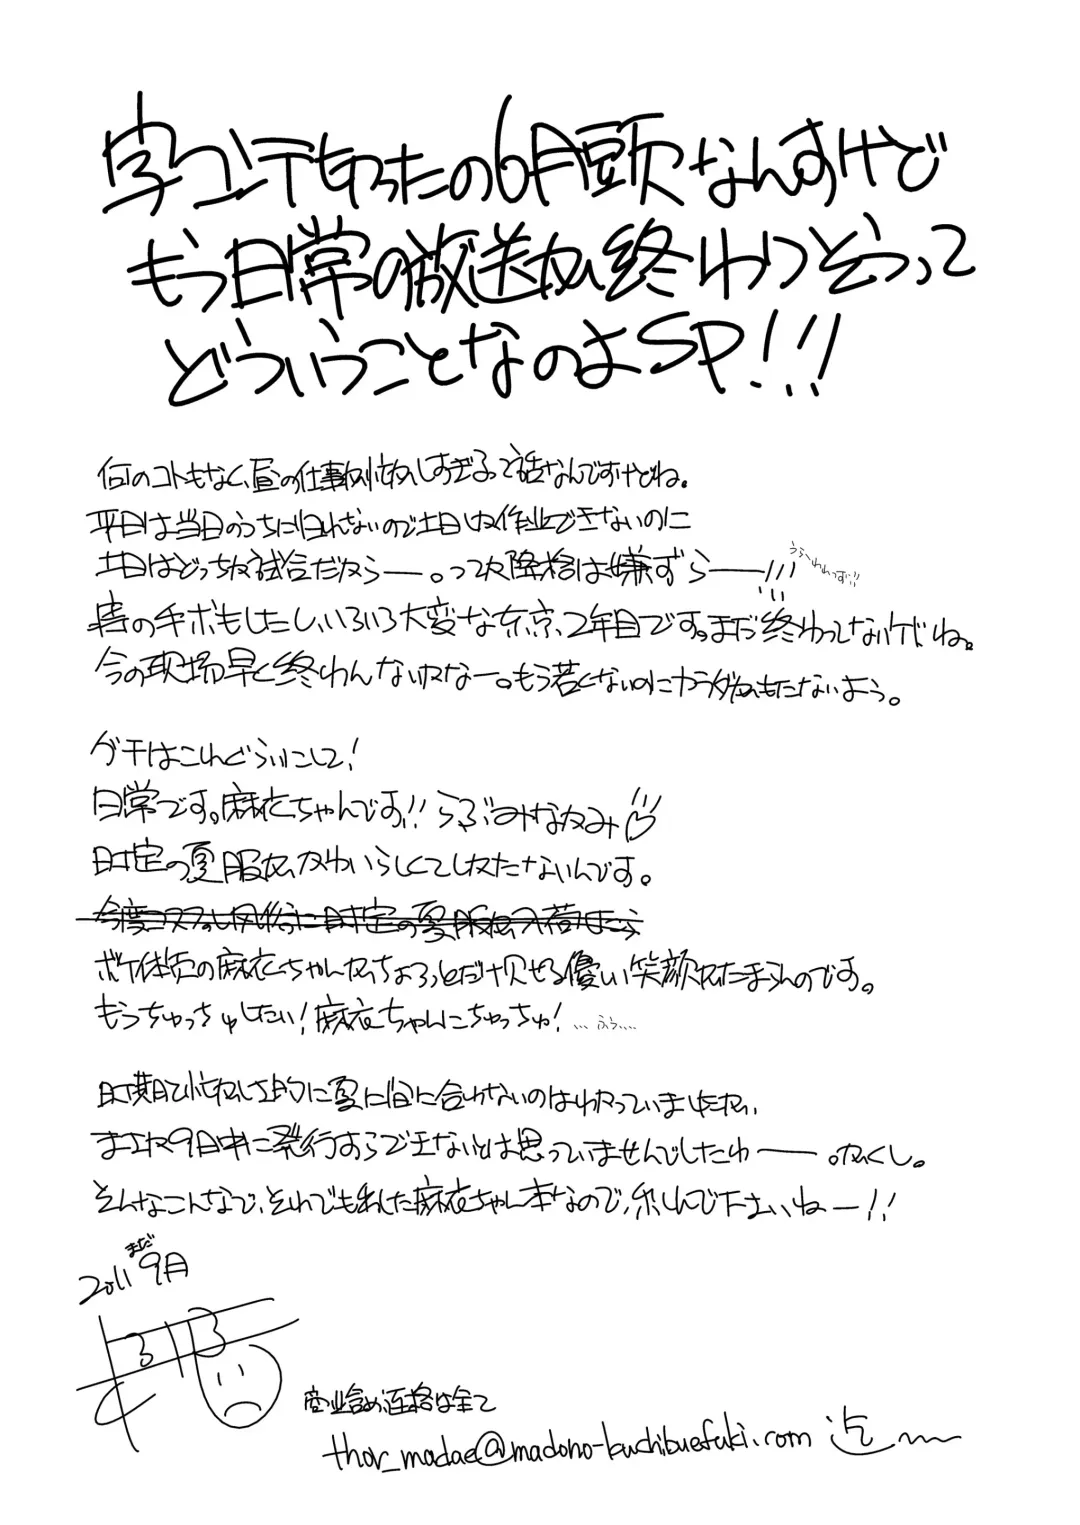 字コンテ切ったの6月頭なんすけど
もう日常の放送が終わりそうって
どういうことなのよSP!!!
何のコトもなく、昼の仕事が忙しすぎるって話なんですけどね。
平日は当日のうちに帰れないので土日しか作業できないのに
土日はどっちか試合だからー。って次降格は嫌ずらー!!!
うらーわれっず!!
時の手ボもしたし、いろいろ大変な東京、2年目です。まだ終わってないケドね。
今の現場早く終わんないかなー。もう若くないのにカラダがもたないよう。
グチはこれぐらいにして!
日常です。麻衣ちゃんです!! らぶみなかみ
時定の夏服が、かわいらしくてしかたないんです。
今度コスプレ風俗に時定の夏服が入荷したら
ボケ体質の麻衣ちゃんが、ちょろっとだけ見せる優しい笑顔がたまらんのです。
もうちゅっちゅしたい!麻衣ちゃんにちゅっちゅ! …ふぅ…
時期と忙しさ的に夏に間に合わないのはわかっていましたが、
まさか9月中に発行すらできないとは思っていませんでしたわー。がくし。
そんなこんなで、それでも出した麻衣ちゃん本なので、楽しんで下さいねー!!
2011 まだ9月
商業含め連絡は全て
thor_madae@madono-kuchibuefuki.com 迄